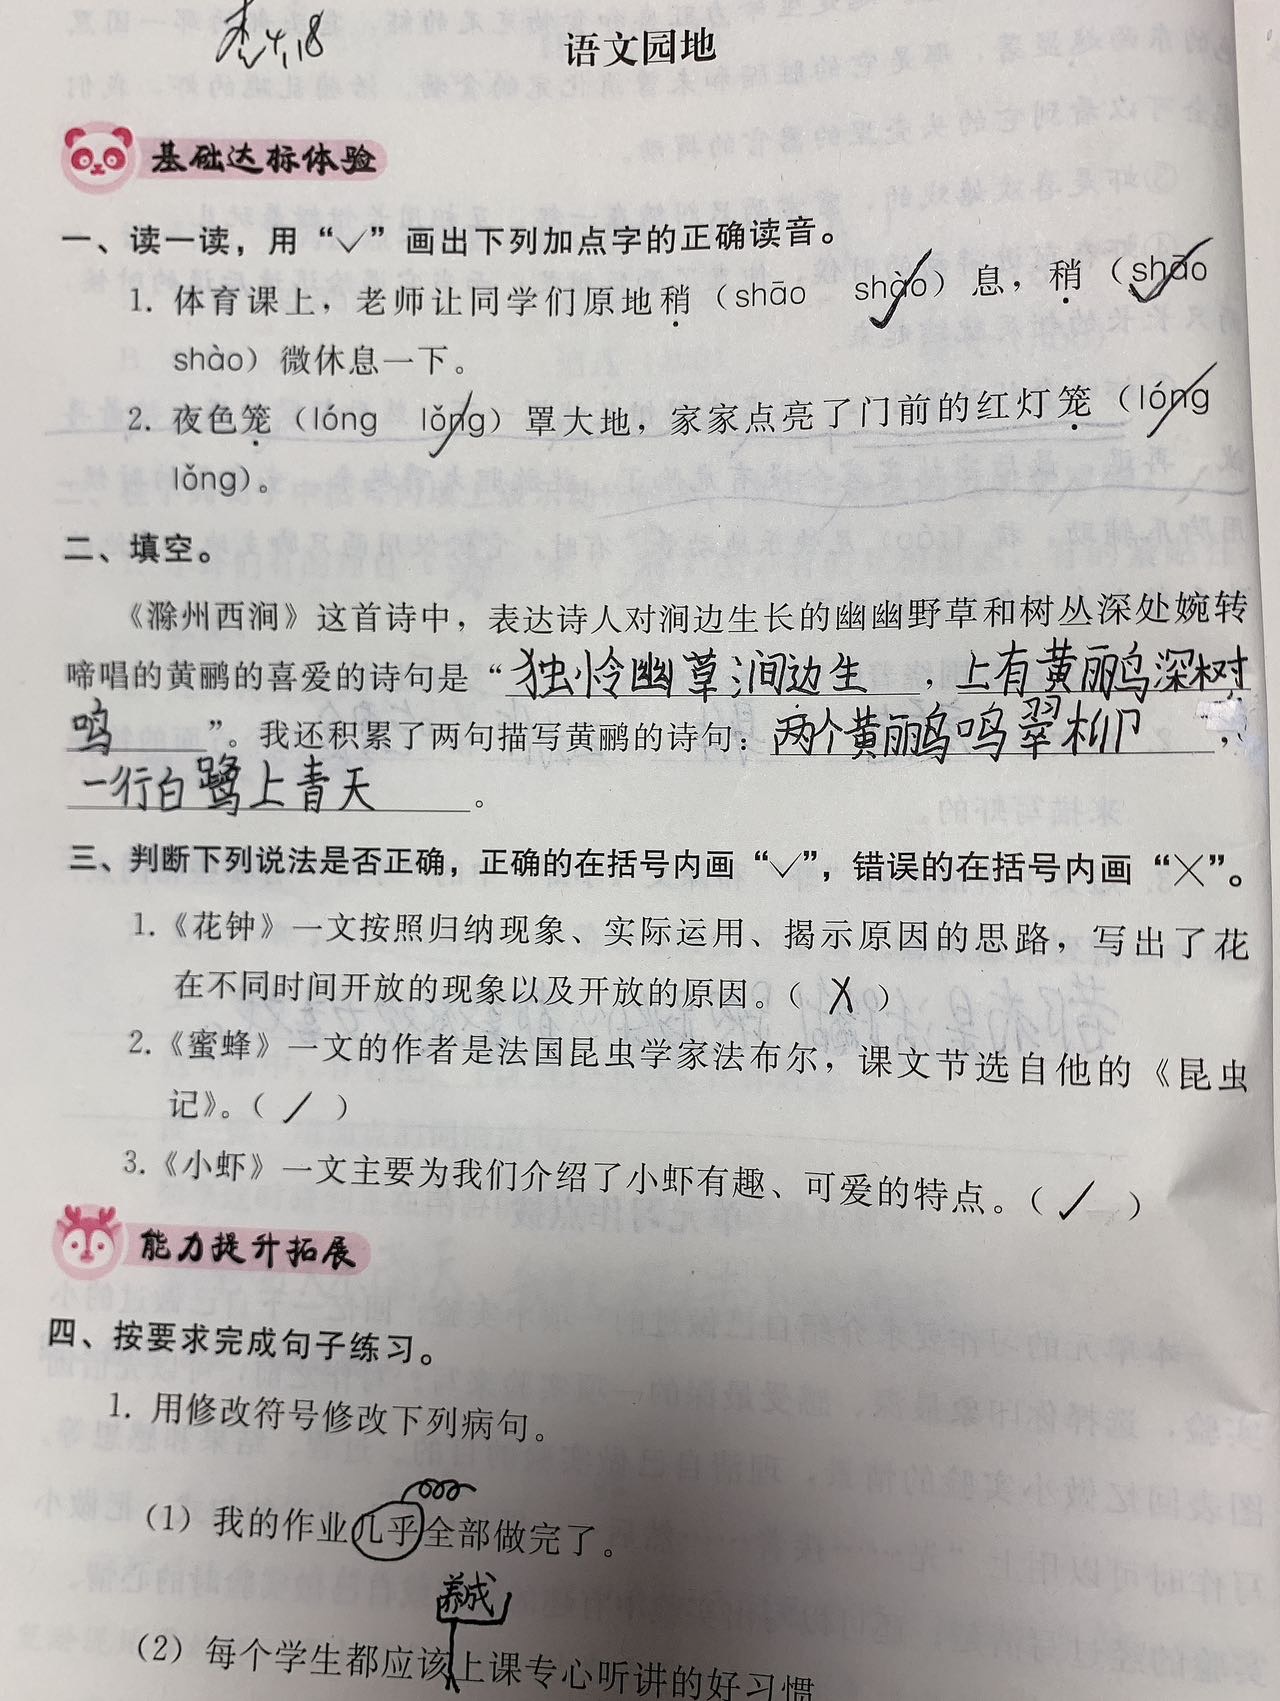 李4.18
语文园地
基础达标体验
一、读一读，用“✓”画出下列加点字的正确读音。
1. 体育课上，老师让同学们原地稍（shāo shào）息，稍（shāo
shào）微休息一下。
2. 夜色笼（lóng lǒng）罩大地，家家点亮了门前的红灯笼（lóng
lǒng）。
二、填空。
《滁州西涧》这首诗中，表达诗人对涧边生长的幽幽野草和树丛深处婉转
啼唱的黄鹂的喜爱的诗句是“独怜幽草涧边生，上有黄鹂深树
鸣”。我还积累了两句描写黄鹂的诗句：两个黄鹂鸣翠柳，
一行白鹭上青天。
三、判断下列说法是否正确，正确的在括号内画“✓”，错误的在括号内画“╳”。
1.《花钟》一文按照归纳现象、实际运用、揭示原因的思路，写出了花
在不同时间开放的现象以及开放的原因。（X）
2.《蜜蜂》一文的作者是法国昆虫学家法布尔，课文节选自他的《昆虫
记》。（✓）
3.《小虾》一文主要为我们介绍了小虾有趣、可爱的特点。（✓）
能力提升拓展
四、按要求完成句子练习。
1. 用修改符号修改下列病句。
（1）我的作业几乎全部做完了。
养成
（2）每个学生都应该上课专心听讲的好习惯